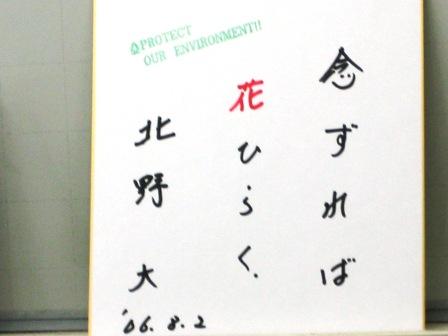 PROTECT
OUR ENVIRONMENT!!
念ずれば
花ひらく.
北野 大
'06.8.2